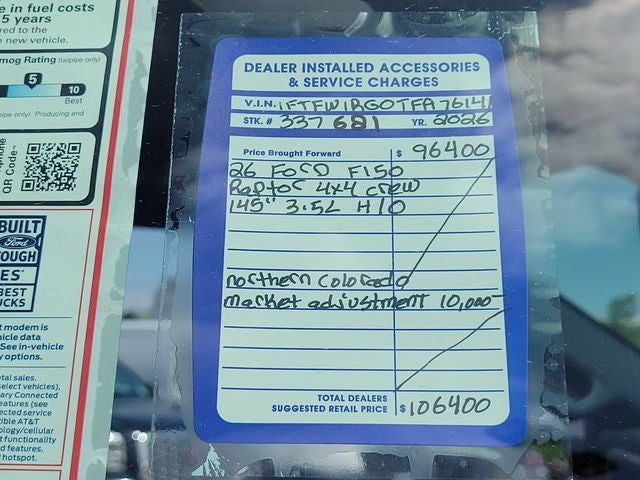 e in fuel costs
5 years
red to the
e new vehicle.
mog Rating (tailpipe only)
5
10
Best
ipe only). Producing and
QR Code
BUILT
Ford
OUGH
ES
BEST
UCKS
t modem is
hicle data
See in-vehicle
y options.
tal sales.
select vehicles),
ary Connected
eatures (see
ected service
tible AT&T
ology/cellular
t functionality
d features.
hotspot.
DEALER INSTALLED ACCESSORIES
& SERVICE CHARGES
V.I.N. 1FTFW1RG0TFA76141
STK. # 337681 YR. 2026
Price Brought Forward $ 96400
26 Ford F150
Raptor 4x4 crew
145" 3.5L H/O
northern Colorado
market adjustment 10,000-
TOTAL DEALERS
SUGGESTED RETAIL PRICE $ 106400